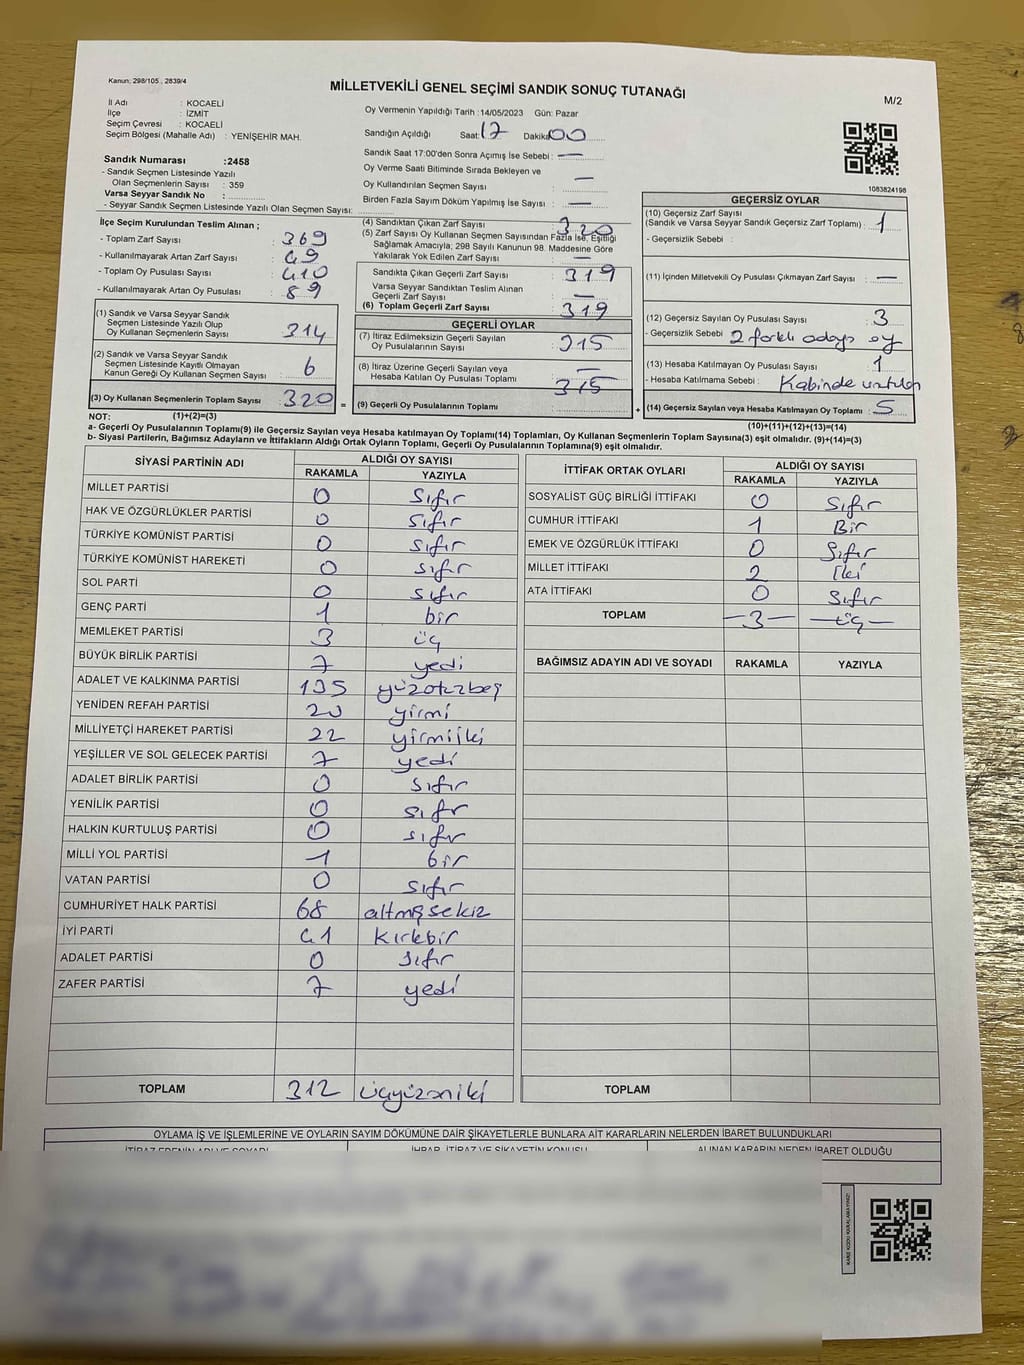 Kanun; 298/105 , 2839/4
MİLLETVEKİLİ GENEL SEÇİMİ SANDIK SONUÇ TUTANAĞI
M/2
İl Adı : KOCAELİ
İlçe : İZMİT
Seçim Çevresi : KOCAELİ
Seçim Bölgesi (Mahalle Adı) : YENİŞEHİR MAH.
Oy Vermenin Yapıldığı Tarih :14/05/2023 Gün: Pazar
Sandığın Açıldığı Saat: 17 Dakika 00
Sandık Saat 17:00'den Sonra Açımış İse Sebebi : —
Oy Verme Saati Bitiminde Sırada Bekleyen ve
Oy Kullandırılan Seçmen Sayısı : —
Birden Fazla Sayım Döküm Yapılmış İse Sayısı : —
1083824198
Sandık Numarası :2458
- Sandık Seçmen Listesinde Yazılı
Olan Seçmenlerin Sayısı : 359
Varsa Seyyar Sandık No :
- Seyyar Sandık Seçmen Listesinde Yazılı Olan Seçmen Sayısı:
İlçe Seçim Kurulundan Teslim Alınan ;
- Toplam Zarf Sayısı : 369
- Kullanılmayarak Artan Zarf Sayısı : 49
- Toplam Oy Pusulası Sayısı : 410
- Kullanılmayarak Artan Oy Pusulası : 89
(1) Sandık ve Varsa Seyyar Sandık
Seçmen Listesinde Yazılı Olup
Oy Kullanan Seçmenlerin Sayısı : 314
(2) Sandık ve Varsa Seyyar Sandık
Seçmen Listesinde Kayıtlı Olmayan
Kanun Gereği Oy Kullanan Seçmen Sayısı : 6
(3) Oy Kullanan Seçmenlerin Toplam Sayısı : 320
(4) Sandıktan Çıkan Zarf Sayısı : 320
(5) Zarf Sayısı Oy Kullanan Seçmen Sayısından Fazla İse, Eşitliği
Sağlamak Amacıyla; 298 Sayılı Kanunun 98. Maddesine Göre
Yakılarak Yok Edilen Zarf Sayısı : —
Sandıkta Çıkan Geçerli Zarf Sayısı : 319
Varsa Seyyar Sandıktan Teslim Alınan
Geçerli Zarf Sayısı : —
(6) Toplam Geçerli Zarf Sayısı : 319
GEÇERLİ OYLAR
(7) İtiraz Edilmeksizin Geçerli Sayılan
Oy Pusulalarının Sayısı : 315
(8) İtiraz Üzerine Geçerli Sayılan veya
Hesaba Katılan Oy Pusulası Toplamı : —
= (9) Geçerli Oy Pusulalarının Toplamı : 315
GEÇERSİZ OYLAR
(10) Geçersiz Zarf Sayısı
(Sandık ve Varsa Seyyar Sandık Geçersiz Zarf Toplamı) : 1
- Geçersizlik Sebebi :
(11) İçinden Milletvekili Oy Pusulası Çıkmayan Zarf Sayısı : —
(12) Geçersiz Sayılan Oy Pusulası Sayısı : 3
- Geçersizlik Sebebi : 2 farklı adaya oy
(13) Hesaba Katılmayan Oy Pusulası Sayısı : 1
- Hesaba Katılmama Sebebi : Kabinde unutulan
+ (14) Geçersiz Sayılan veya Hesaba Katılmayan Oy Toplamı : 5
NOT: (1)+(2)=(3)
(10)+(11)+(12)+(13)=(14)
a- Geçerli Oy Pusulalarının Toplamı(9) ile Geçersiz Sayılan veya Hesaba katılmayan Oy Toplamı(14) Toplamları, Oy Kullanan Seçmenlerin Toplam Sayısına(3) eşit olmalıdır. (9)+(14)=(3)
b- Siyasi Partilerin, Bağımsız Adayların ve İttifakların Aldığı Ortak Oyların Toplamı, Geçerli Oy Pusulalarının Toplamına(9) eşit olmalıdır.
SİYASİ PARTİNİN ADI ALDIĞI OY SAYISI
RAKAMLA YAZIYLA
MİLLET PARTİSİ 0 Sıfır
HAK VE ÖZGÜRLÜKLER PARTİSİ 0 sıfır
TÜRKİYE KOMÜNİST PARTİSİ 0 sıfır
TÜRKİYE KOMÜNİST HAREKETİ 0 sıfır
SOL PARTİ 0 sıfır
GENÇ PARTİ 1 bir
MEMLEKET PARTİSİ 3 üç
BÜYÜK BİRLİK PARTİSİ 7 yedi
ADALET VE KALKINMA PARTİSİ 135 yüzotuzbeş
YENİDEN REFAH PARTİSİ 20 yirmi
MİLLİYETÇİ HAREKET PARTİSİ 22 yirmiiki
YEŞİLLER VE SOL GELECEK PARTİSİ 7 yedi
ADALET BİRLİK PARTİSİ 0 sıfır
YENİLİK PARTİSİ 0 sıfır
HALKIN KURTULUŞ PARTİSİ 0 sıfır
MİLLİ YOL PARTİSİ 1 bir
VATAN PARTİSİ 0 sıfır
CUMHURİYET HALK PARTİSİ 68 altmışsekiz
İYİ PARTİ 41 kırkbir
ADALET PARTİSİ 0 sıfır
ZAFER PARTİSİ 7 yedi
TOPLAM 312 üçyüzoniki
İTTİFAK ORTAK OYLARI ALDIĞI OY SAYISI
RAKAMLA YAZIYLA
SOSYALİST GÜÇ BİRLİĞİ İTTİFAKI 0 Sıfır
CUMHUR İTTİFAKI 1 Bir
EMEK VE ÖZGÜRLÜK İTTİFAKI 0 Sıfır
MİLLET İTTİFAKI 2 İki
ATA İTTİFAKI 0 Sıfır
TOPLAM —3— —üç—
BAĞIMSIZ ADAYIN ADI VE SOYADI RAKAMLA YAZIYLA
TOPLAM
OYLAMA İŞ VE İŞLEMLERİNE VE OYLARIN SAYIM DÖKÜMÜNE DAİR ŞİKAYETLERLE BUNLARA AİT KARARLARIN NELERDEN İBARET BULUNDUKLARI
İTİRAZ EDENİN ADI VE SOYADI İHBAR, İTİRAZ VE ŞİKAYETİN KONUSU ALINAN KARARIN NEDEN İBARET OLDUĞU
KARE KODU KARALAMAYINIZ!